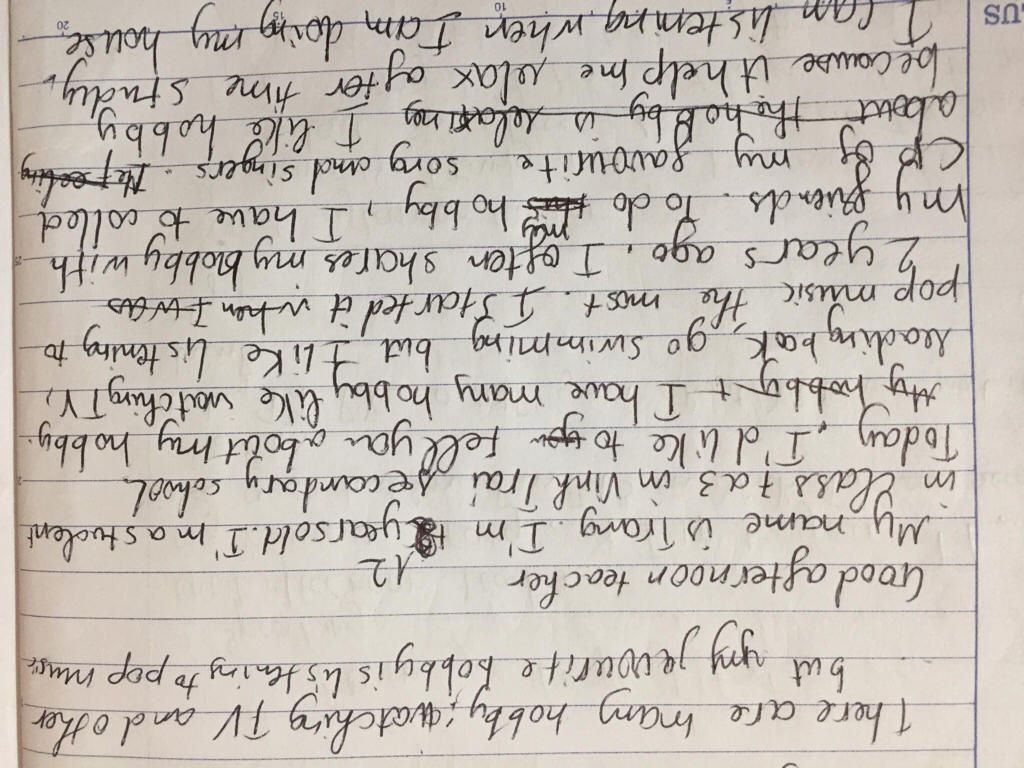 There are many hobby; watching TV and other
but my fevourite hobby is listening to pop music
Good afternoon teacher
12
My name is Trang. I'm years old. I'm a student
in Class 7a3 in Vinh Trai secondary school.
Today, I'd like to you tell you about my hobby.
My hobby I have many hobby like watching TV,
reading book, go swimming but I like listening to
pop music the most. I started it when I was
2 years ago. I often shares my hobby with
my friends. To do this my hobby, I have to colled
CD of my favourite song and singers.
about the hobby is relaxing I like hobby
because it help me relax after time study.
I can listening when I am doing my house
10
15
20